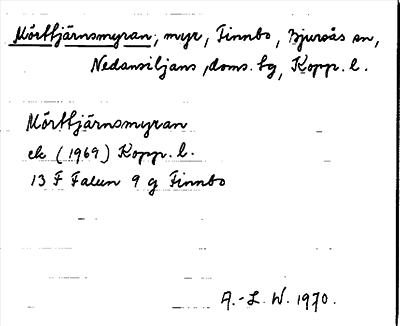 Mörttjärnsmyran, myr, Finnbo, Bjursås sn,
Nedansiljans doms. tg, Kopp. l.
Mörttjärnsmyran
ek (1969) Kopp. l.
13 F Falun 9 g Finnbo
A.-L. W. 1970.